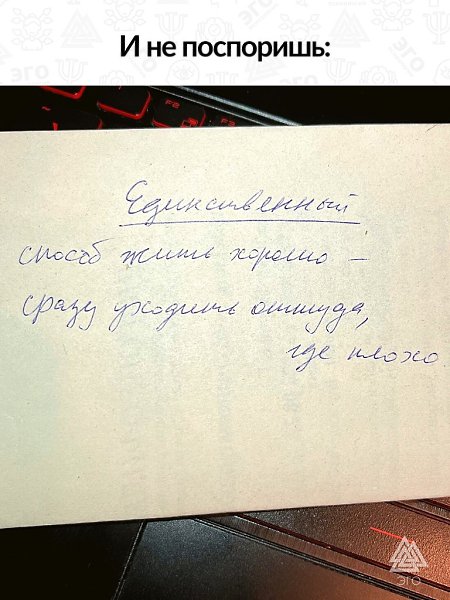 И не поспоришь:
Единственный
способ жить хорошо –
сразу уходить оттуда,
где плохо
ЭГО